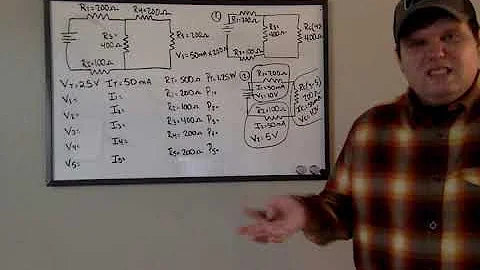 R1=200Ω R4=200Ω
R3=
400Ω
R5=200Ω
R2=100Ω
①
R1=200Ω
R3=
400Ω
400Ω
R2=100Ω
V1=50mA×200Ω
VT=25V IT=50mA RT=500Ω PT=1.25W
V1= I1= R1=200Ω P1=
V2= I2= R2=100Ω P2=
V3= I3= R3=400Ω P3=
V4= I4= R4=200Ω P4=
V5= I5= R5=200Ω P5=
②
R1=200Ω
I1=50mA
V1=10V
R2=100Ω
I2=50mA
V2=5V
200Ω